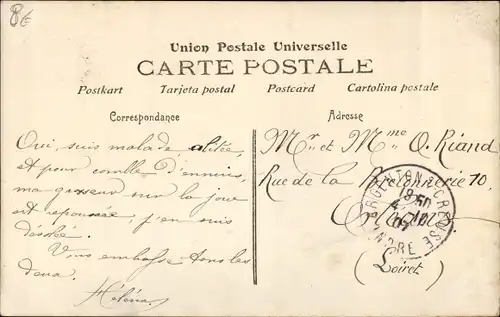 8€
Union Postale Universelle
CARTE POSTALE
Postkart Tarjeta postal Postcard Cartolina postale
Correspondance
Adresse
Oui, suis malade alitée,
et pour comble d'ennuis,
ma grosseur sur la joue
est repoussée, j'en suis
désolée.
Vous embrasse tous les
deux.
Héléna
Mr et Mme O. Riand
Rue de la Bretonnerie 70
Orléans
(Loiret)
ARGENTON-S-CREUSE
INDRE